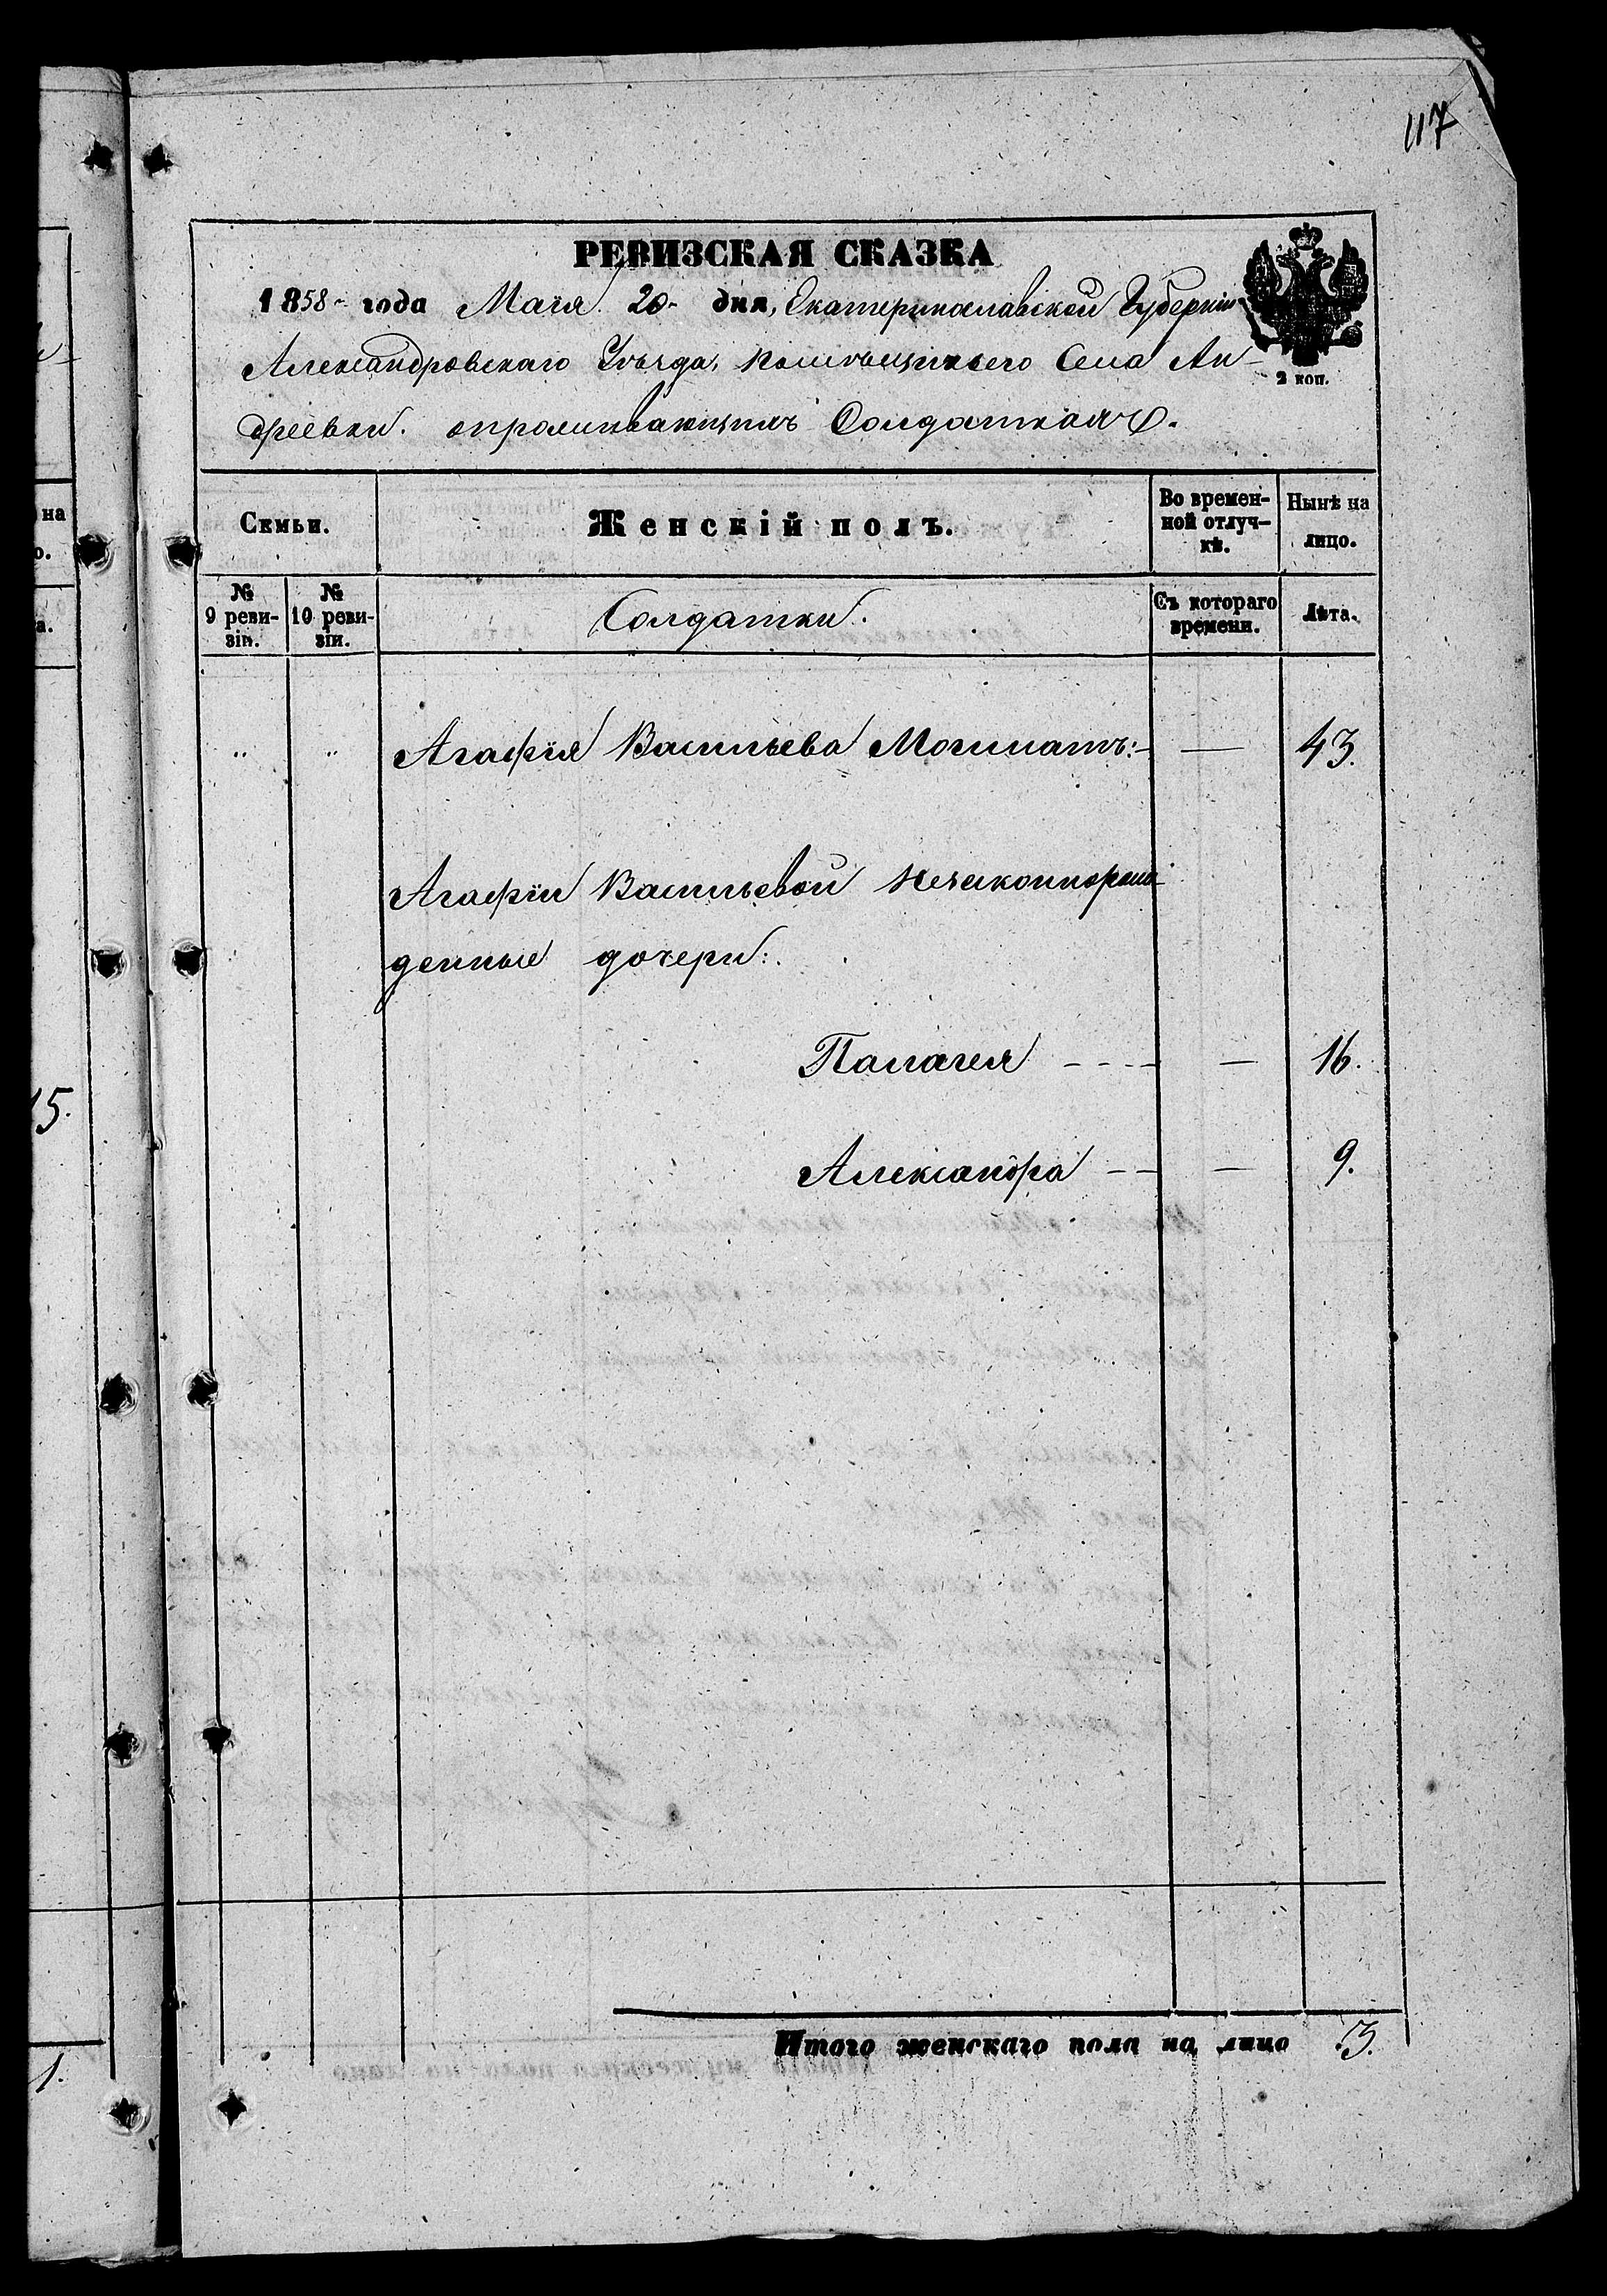 117
РЕВИЗСКАЯ СКАЗКА
1858 года Маія 20 дня, Екатеринославской Губерніи
Александровскаго Уѣзда, помѣщичьего Села Ан-
дреевки. о проживающихъ Солдаткахъ.
2 коп.
Семьи. Женскій полъ. Во времен-
ной отлуч-
кѣ. Нынѣ на
лицо.
№
9 реви-
зіи. №
10 реви-
зіи. Солдатки. Съ котораго
времени. Лѣта.
" " Агафія Васильева — 43.
Агафіи Васильевой незаконнорож-
денные дочери:
Палагея - - - — 16.
Александра - - — 9.
Итого женскаго пола на лицо 3.
на
о.
а.
15.
1.